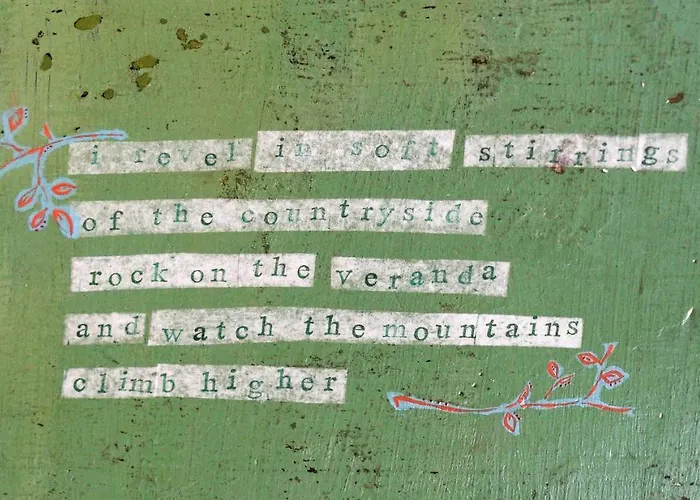 i revel in soft stirrings
of the countryside
rock on the veranda
and watch the mountains
climb higher